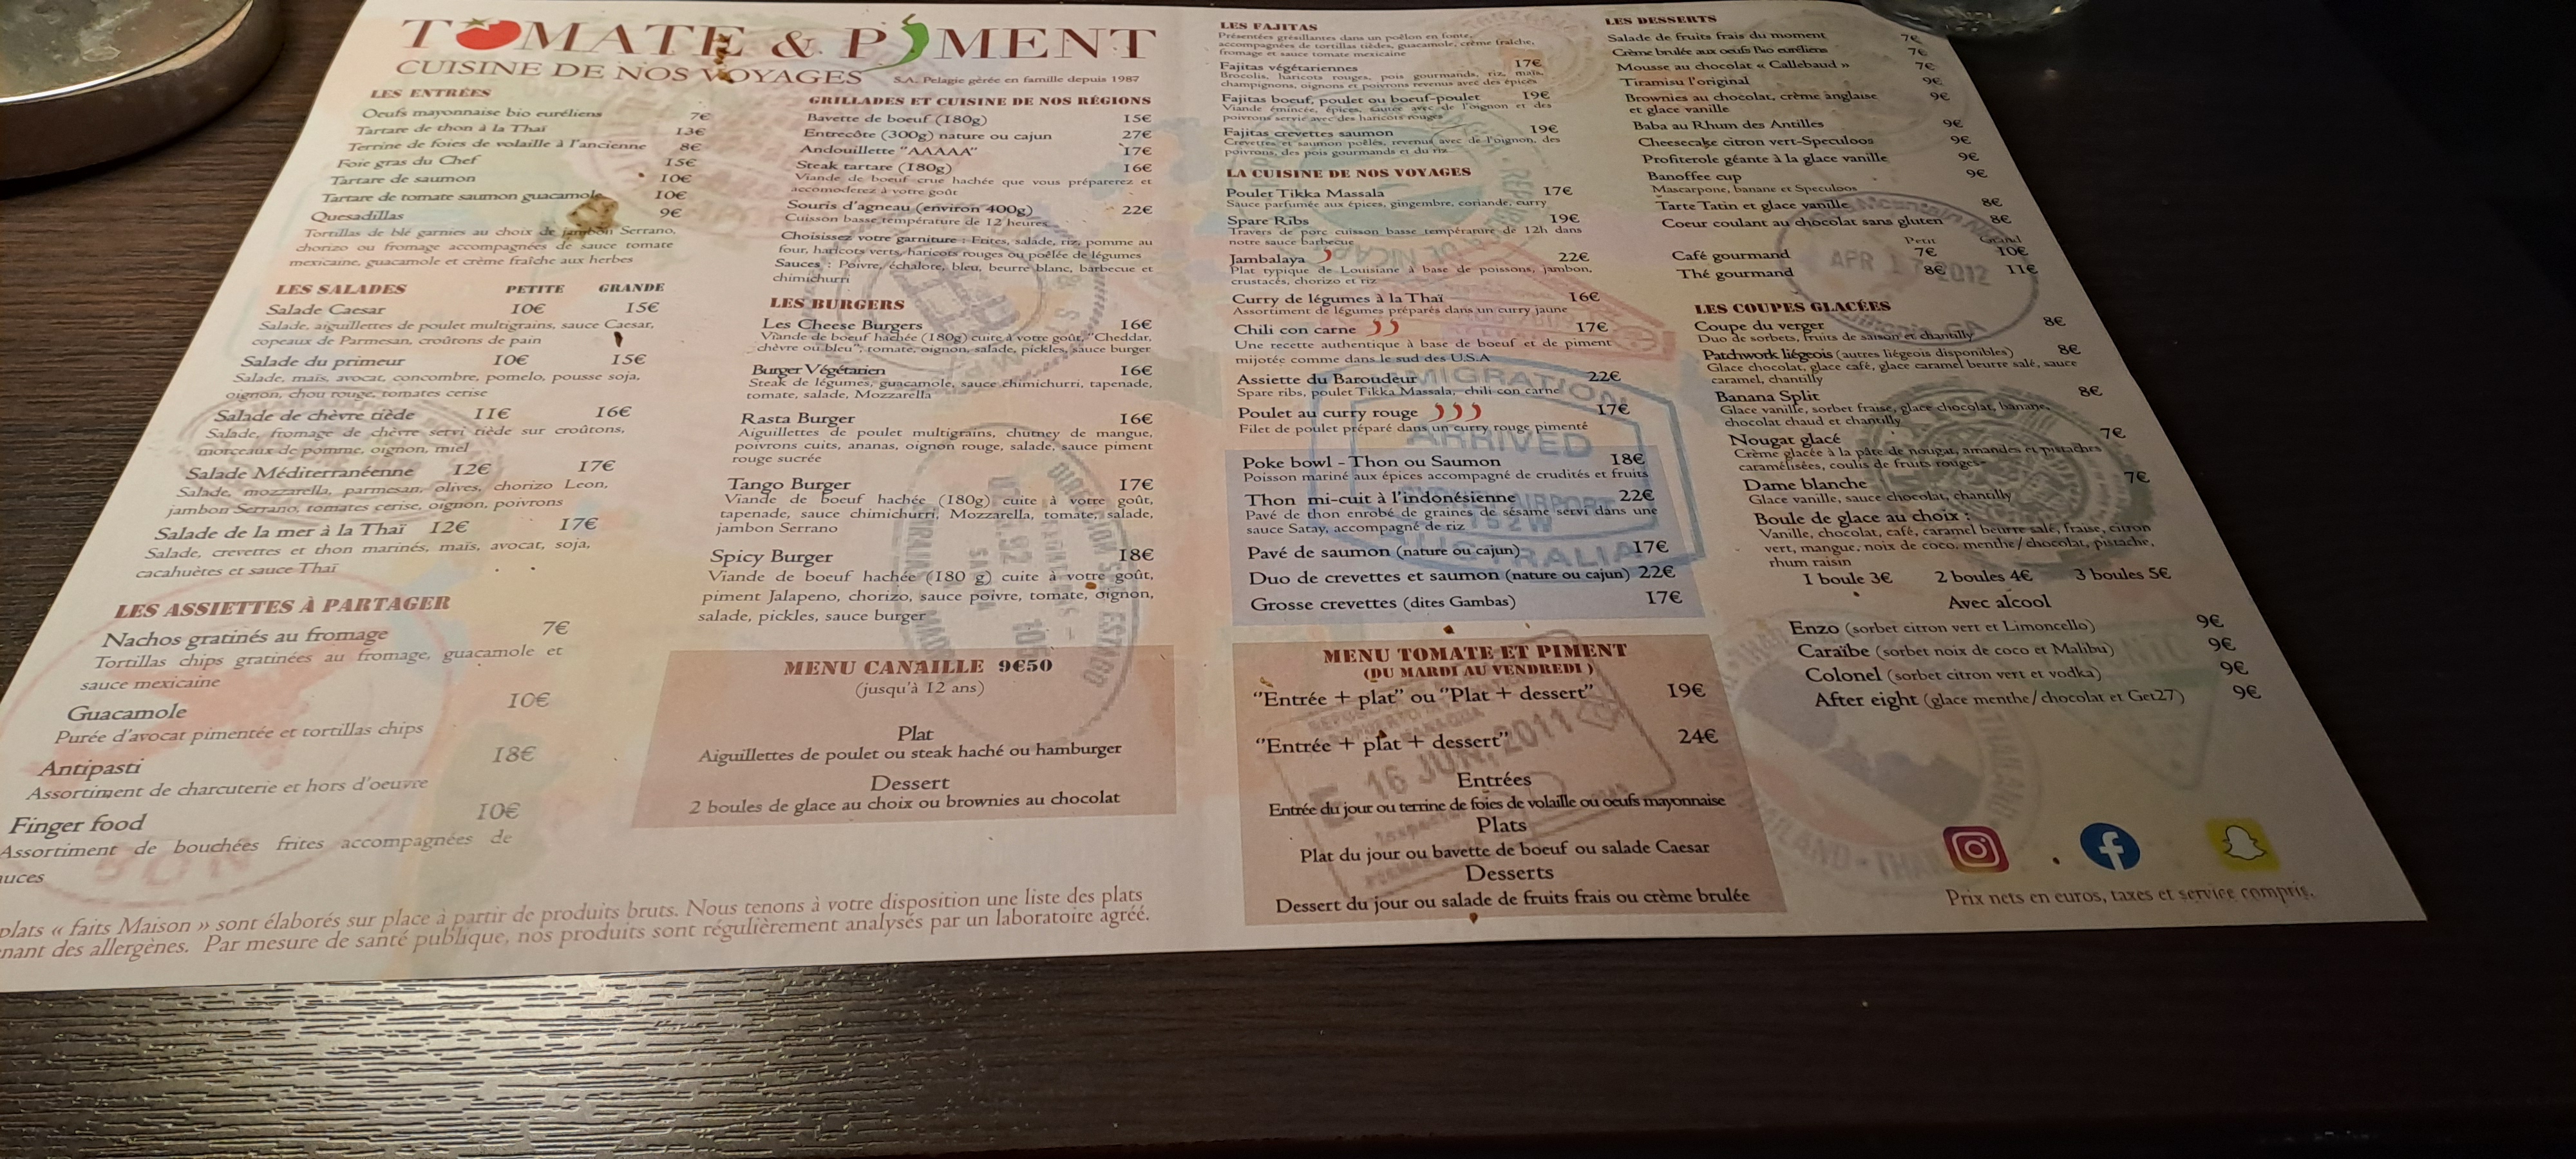 TOMATE & PIMENT
CUISINE DE NOS VOYAGES S.A. Pelagie gérée en famille depuis 1987
LES ENTRÉES
Oeufs mayonnaise bio euréliens 7€
Tartare de thon à la Thaï 13€
Terrine de foies de volaille à l'ancienne 8€
Foie gras du Chef 15€
Tartare de saumon 10€
Tartare de tomate saumon guacamole 10€
Quesadillas 9€
Tortillas de blé garnies au choix de jambon Serrano,
chorizo ou fromage accompagnées de sauce tomate
mexicaine, guacamole et crème fraîche aux herbes
LES SALADES PETITE GRANDE
Salade Caesar 10€ 15€
Salade, aiguillettes de poulet multigrains, sauce Caesar,
copeaux de Parmesan, croûtons de pain
Salade du primeur 10€ 15€
Salade, maïs, avocat, concombre, pomelo, pousse soja,
oignon, chou rouge, tomates cerise
Salade de chèvre tiède 11€ 16€
Salade, fromage de chèvre servi tiède sur croûtons,
morceaux de pomme, oignon, miel
Salade Méditerranéenne 12€ 17€
Salade, mozzarella, parmesan, olives, chorizo Leon,
jambon Serrano, tomates cerise, oignon, poivrons
Salade de la mer à la Thaï 12€ 17€
Salade, crevettes et thon marinés, maïs, avocat, soja,
cacahuètes et sauce Thaï
LES ASSIETTES À PARTAGER
Nachos gratinés au fromage 7€
Tortillas chips gratinées au fromage, guacamole et
sauce mexicaine
Guacamole 10€
Purée d'avocat pimentée et tortillas chips
Antipasti 18€
Assortiment de charcuterie et hors d'oeuvre
Finger food 10€
Assortiment de bouchées frites accompagnées de
auces
plats « faits Maison » sont élaborés sur place à partir de produits bruts. Nous tenons à votre disposition une liste des plats
nant des allergènes. Par mesure de santé publique, nos produits sont régulièrement analysés par un laboratoire agréé.
GRILLADES ET CUISINE DE NOS RÉGIONS
Bavette de boeuf (180g) 15€
Entrecôte (300g) nature ou cajun 27€
Andouillette "AAAAA" 17€
Steak tartare (180g) 16€
Viande de boeuf crue hachée que vous préparerez et
accomoderez à votre goût
Souris d'agneau (environ 400g) 22€
Cuisson basse température de 12 heures
Choisissez votre garniture : Frites, salade, riz, pomme au
four, haricots verts, haricots rouges ou poêlée de légumes
Sauces : Poivre, échalote, bleu, beurre blanc, barbecue et
chimichurri
LES BURGERS
Les Cheese Burgers 16€
Viande de boeuf hachée (180g) cuite à votre goût, "Cheddar,
chèvre ou bleu", tomate, oignon, salade, pickles, sauce burger
Burger Végétarien 16€
Steak de légumes, guacamole, sauce chimichurri, tapenade,
tomate, salade, Mozzarella
Rasta Burger 16€
Aiguillettes de poulet multigrains, chutney de mangue,
poivrons cuits, ananas, oignon rouge, salade, sauce piment
rouge sucrée
Tango Burger 17€
Viande de boeuf hachée (180g) cuite à votre goût,
tapenade, sauce chimichurri, Mozzarella, tomate, salade,
jambon Serrano
Spicy Burger 18€
Viande de boeuf hachée (180 g) cuite à votre goût,
piment Jalapeno, chorizo, sauce poivre, tomate, oignon,
salade, pickles, sauce burger
MENU CANAILLE 9€50
(jusqu'à 12 ans)
Plat
Aiguillettes de poulet ou steak haché ou hamburger
Dessert
2 boules de glace au choix ou brownies au chocolat
LES FAJITAS
Présentées grésillantes dans un poêlon en fonte,
accompagnées de tortillas tièdes, guacamole, crème fraîche,
fromage et sauce tomate mexicaine
Fajitas végétariennes 17€
Brocolis, haricots rouges, pois gourmands, riz, maïs,
champignons, oignons et poivrons revenus avec des épices
Fajitas boeuf, poulet ou boeuf-poulet 19€
Viande émincée, épices, sautée avec de l'oignon et des
poivrons servie avec des haricots rouges
Fajitas crevettes saumon 19€
Crevettes et saumon poêlés, revenus avec de l'oignon, des
poivrons, des pois gourmands et du riz
LA CUISINE DE NOS VOYAGES
Poulet Tikka Massala 17€
Sauce parfumée aux épices, gingembre, coriande, curry
Spare Ribs 19€
Travers de porc cuisson basse température de 12h dans
notre sauce barbecue
Jambalaya 22€
Plat typique de Louisiane à base de poissons, jambon,
crustacés, chorizo et riz
Curry de légumes à la Thaï 16€
Assortiment de légumes préparés dans un curry jaune
Chili con carne 17€
Une recette authentique à base de boeuf et de piment
mijotée comme dans le sud des U.S.A
Assiette du Baroudeur 22€
Spare ribs, poulet Tikka Massala, chili con carne
Poulet au curry rouge 17€
Filet de poulet préparé dans un curry rouge pimenté
Poke bowl - Thon ou Saumon 18€
Poisson mariné aux épices accompagné de crudités et fruits
Thon mi-cuit à l'indonésienne 22€
Pavé de thon enrobé de graines de sésame servi dans une
sauce Satay, accompagné de riz
Pavé de saumon (nature ou cajun) 17€
Duo de crevettes et saumon (nature ou cajun) 22€
Grosse crevettes (dites Gambas) 17€
MENU TOMATE ET PIMENT
(DU MARDI AU VENDREDI )
"Entrée + plat" ou "Plat + dessert" 19€
"Entrée + plat + dessert" 24€
Entrées
Entrée du jour ou terrine de foies de volaille ou oeufs mayonnaise
Plats
Plat du jour ou bavette de boeuf ou salade Caesar
Desserts
Dessert du jour ou salade de fruits frais ou crème brulée
LES DESSERTS
Salade de fruits frais du moment 7€
Crème brulée aux oeufs Bio euréliens 7€
Mousse au chocolat « Callebaud » 7€
Tiramisu l'original 9€
Brownies au chocolat, crème anglaise 9€
et glace vanille
Baba au Rhum des Antilles 9€
Cheesecake citron vert-Speculoos 9€
Profiterole géante à la glace vanille 9€
Banoffee cup 9€
Mascarpone, banane et Speculoos
Tarte Tatin et glace vanille 8€
Coeur coulant au chocolat sans gluten 8€
Petit Grand
Café gourmand 7€ 10€
Thé gourmand 8€ 11€
LES COUPES GLACÉES
Coupe du verger 8€
Duo de sorbets, fruits de saison et chantilly
Patchwork liégeois (autres liégeois disponibles) 8€
Glace chocolat, glace café, glace caramel beurre salé, sauce
caramel, chantilly
Banana Split 8€
Glace vanille, sorbet fraise, glace chocolat, banane,
chocolat chaud et chantilly
Nougat glacé 7€
Crème glacée à la pâte de nougat, amandes et pistaches
caramélisées, coulis de fruits rouges
Dame blanche 7€
Glace vanille, sauce chocolat, chantilly
Boule de glace au choix :
Vanille, chocolat, café, caramel beurre salé, fraise, citron
vert, mangue, noix de coco, menthe/chocolat, pistache,
rhum raisin
1 boule 3€ 2 boules 4€ 3 boules 5€
Avec alcool
Enzo (sorbet citron vert et Limoncello) 9€
Caraïbe (sorbet noix de coco et Malibu) 9€
Colonel (sorbet citron vert et vodka) 9€
After eight (glace menthe/chocolat et Get27) 9€
Prix nets en euros, taxes et service compris.
IMMIGRATION
ARRIVED
AIRPORT
152W
AUSTRALIA
APR 17 2012
16 JUN 2011